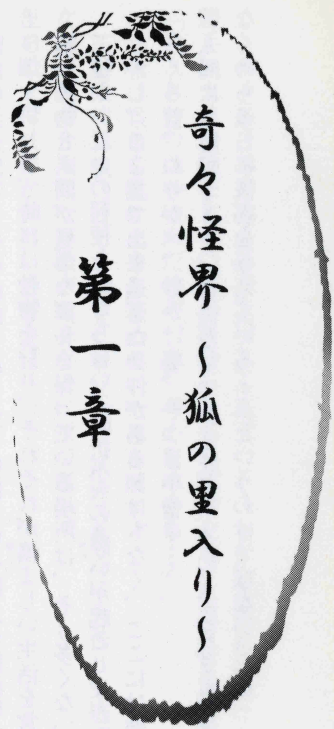 奇々怪界 ～狐の里入り～
第一章